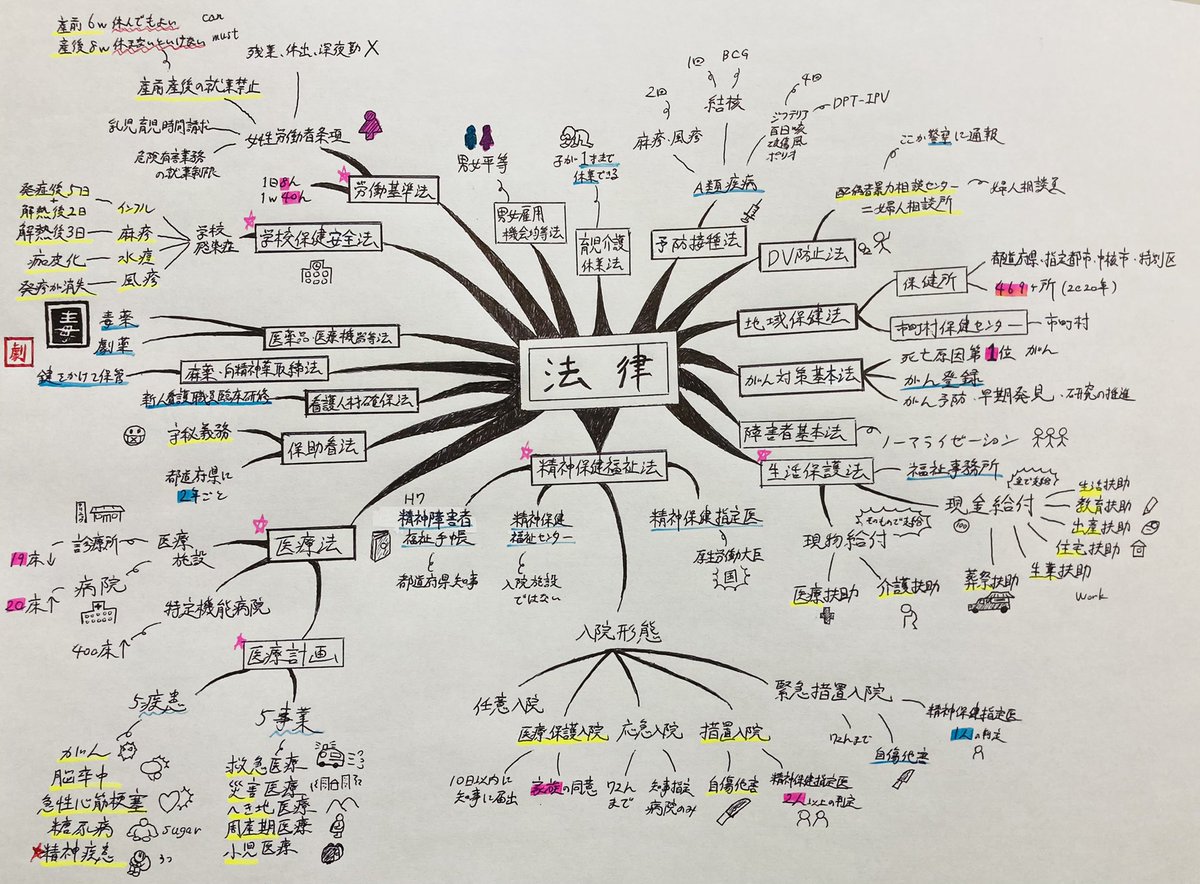 法律
労働基準法
女性労働者条項
産前6w 休んでもよい can
産後8w 休まないといけない must
産前産後の就業禁止
残業、休出、深夜勤 X
乳児育児時間請求
危険有害業務
の就業制限
1日8h
1w40h
学校保健安全法
学校
感染症
発症後5日
+
解熱後2日
インフル
解熱後3日
麻疹
痂皮化
水痘
発疹が消失
風疹
医薬品医療機器等法
毒
毒薬
劇
劇薬
麻薬・向精神薬取締法
鍵をかけて保管
看護人材確保法
新人看護職員臨床研修
保助看法
守秘義務
都道府県に
2年ごと
医療法
医療
施設
診療所
19床↓
病院
20床↑
特定機能病院
400床↑
医療計画
5疾患
がん
脳卒中
急性心筋梗塞
糖尿病
sugar
精神疾患
5事業
救急医療
災害医療
へき地医療
周産期医療
小児医療
男女平等
男女雇用
機会均等法
子が1才まで
休業できる
育児介護
休業法
予防接種法
A類疾病
2回
麻疹・風疹
1回
BCG
結核
4回
DPT-IPV
ジフテリア
百日咳
破傷風
ポリオ
DV防止法
配偶者暴力相談センター
=婦人相談所
ここか警察に通報
婦人相談員
地域保健法
保健所
都道府県・指定都市・中核市・特別区
469ヶ所(2020年)
市町村保健センター
市町村
がん対策基本法
死亡原因第1位 がん
がん登録
がん予防・早期発見・研究の推進
障害者基本法
ノーマライゼーション
生活保護法
福祉事務所
現金給付
金で支給
生活扶助
教育扶助
出産扶助
住宅扶助
生業扶助
work
葬祭扶助
現物給付
そのもので支給
医療扶助
介護扶助
精神保健福祉法
H7
精神障害者
福祉手帳
都道府県知事
精神保健
福祉センター
入院施設
ではない
精神保健指定医
厚生労働大臣
国
入院形態
任意入院
医療保護入院
10日以内に
知事に届出
家族の同意
応急入院
72h
まで
知事指定
病院のみ
措置入院
自傷他害
精神保健指定医
2人以上の判定
緊急措置入院
72hまで
自傷他害
精神保健指定医
1人の判定